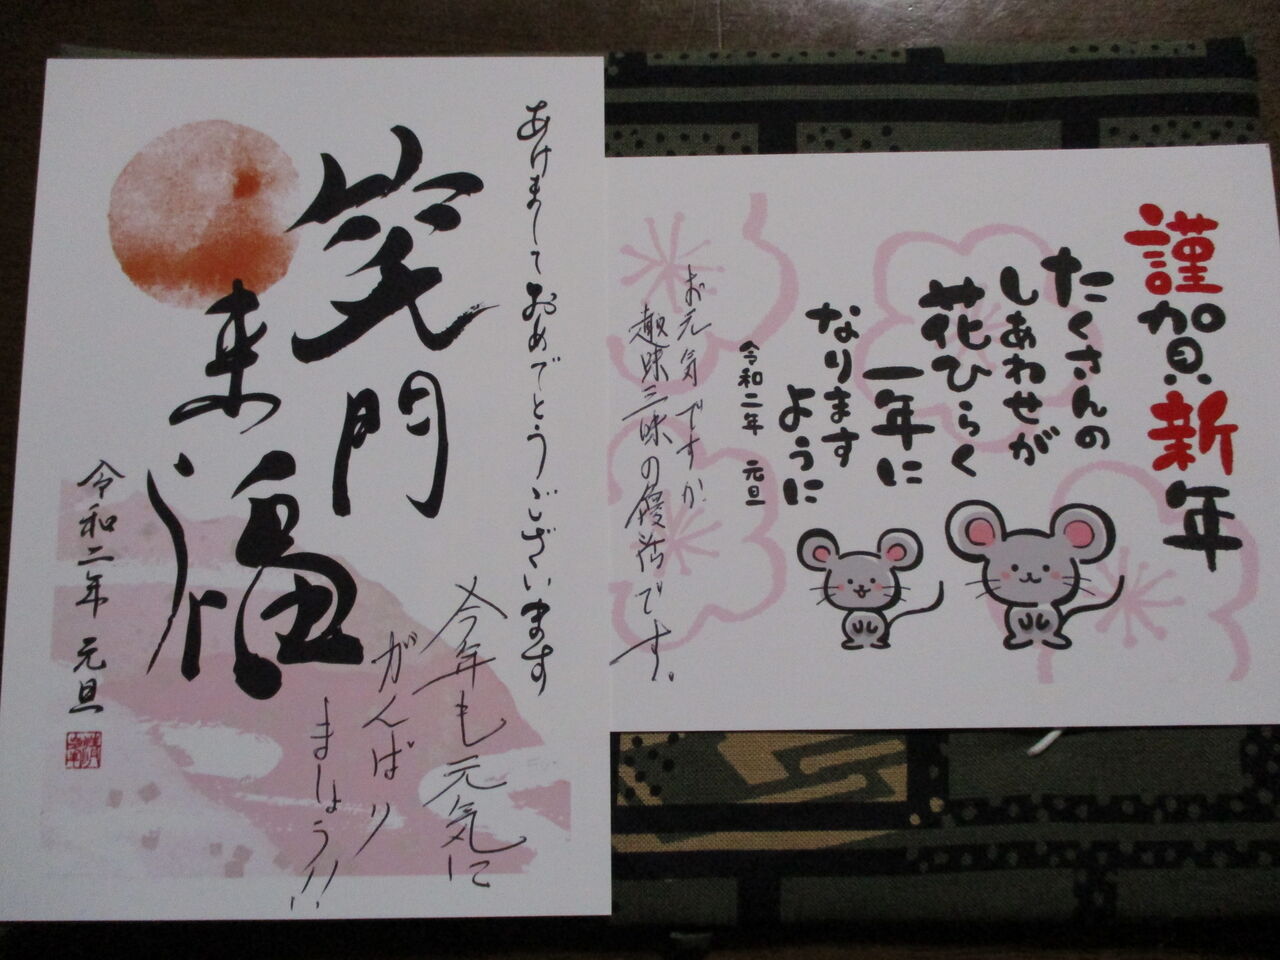 あけましておめでとうございます
笑門
来福
今年も元気に
がんばり
ましょう!!
令和二年 元旦
謹賀新年
たくさんの
しあわせが
花ひらく
一年に
なります
ように
令和二年 元旦
お元気ですか
趣味三昧の慢活です。